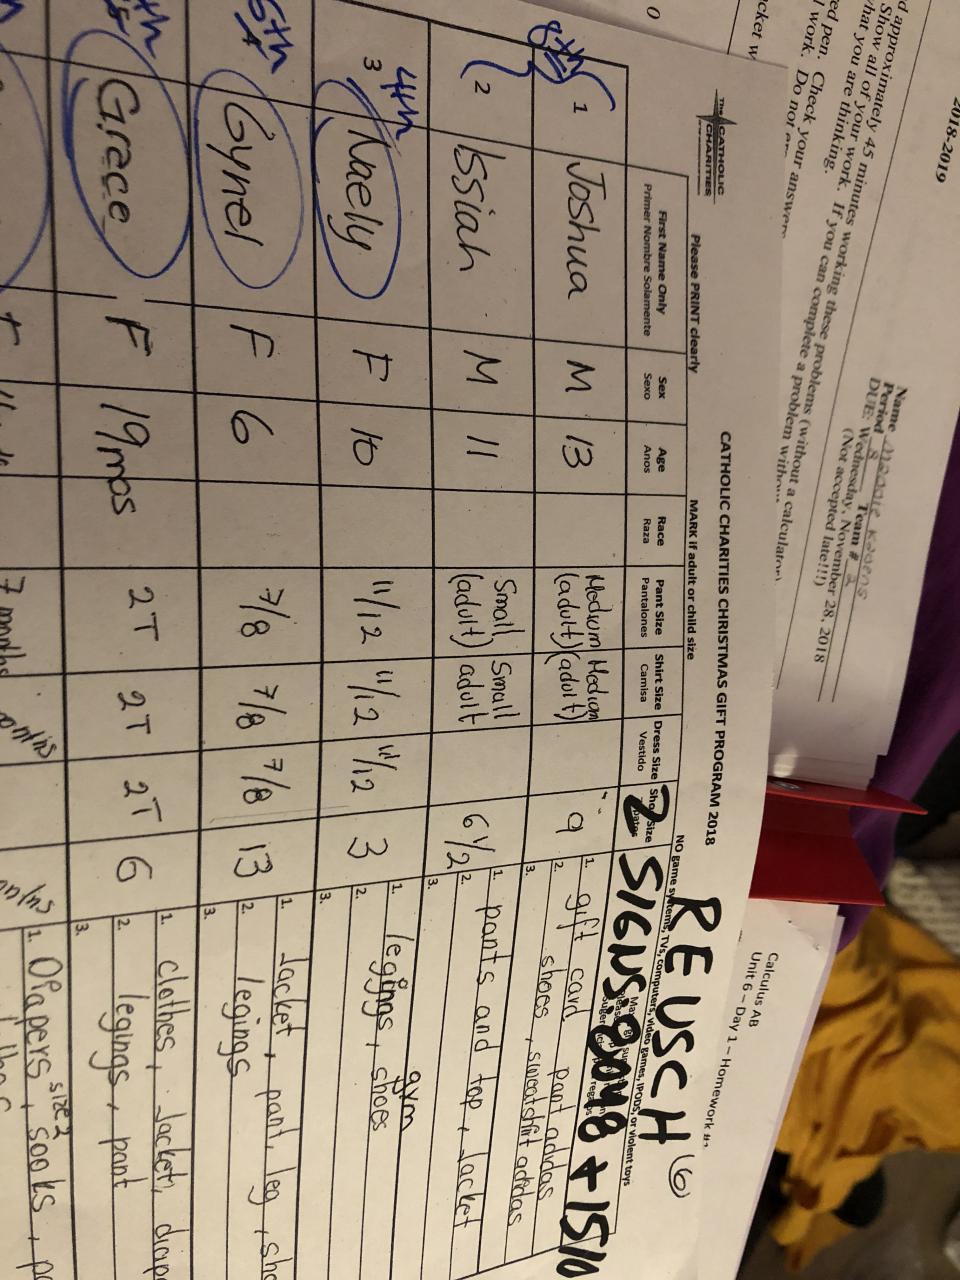 2018-2019
approximately 45 minutes working these problems (without a calculator)
Show all of your work. If you can complete a problem
what you are thinking.
red pen. Check your answers
work. Do not
Name
Period 8 Team # 2
DUE: Wednesday, November 28, 2018
(Not accepted late!!!)
Calculus AB
Unit 6 – Day 1 – Homework
THE CATHOLIC CHARITIES
CATHOLIC CHARITIES CHRISTMAS GIFT PROGRAM 2018
REUSCH (6)
2 SIGNS:
Please PRINT clearly
MARK if adult or child size
NO game systems, TVs, computers, video games, IPODS, or violent toys
First Name Only Sex Age Race Pant Size Shirt Size Dress Size Shoe Size
Primer Nombre Solamente Sexo Anos Raza Pantalones Camisa Vestido
8th 1 Joshua M 13 Medium (adult) Medium (adult) 9
1. gift card pant adidas
2. shoes, sweatshirt adidas
3.
2 Issiah M 11 Small (adult) Small adult 6 1/2
1. pants and top, Jacket
2.
3.
4th 3 Naely F 10 11/12 11/12 11/12 3
gym
1. legings, shoes
2.
3.
5th Gynel F 6 7/8 7/8 7/8 13
1. Jacket, pant, leg,
2. legings
3.
Grece F 19mos 2T 2T 2T 6
1. clothes, Jacket,
2. legings, pant
3.
7 months
size 2
1. DPapers, sooks,